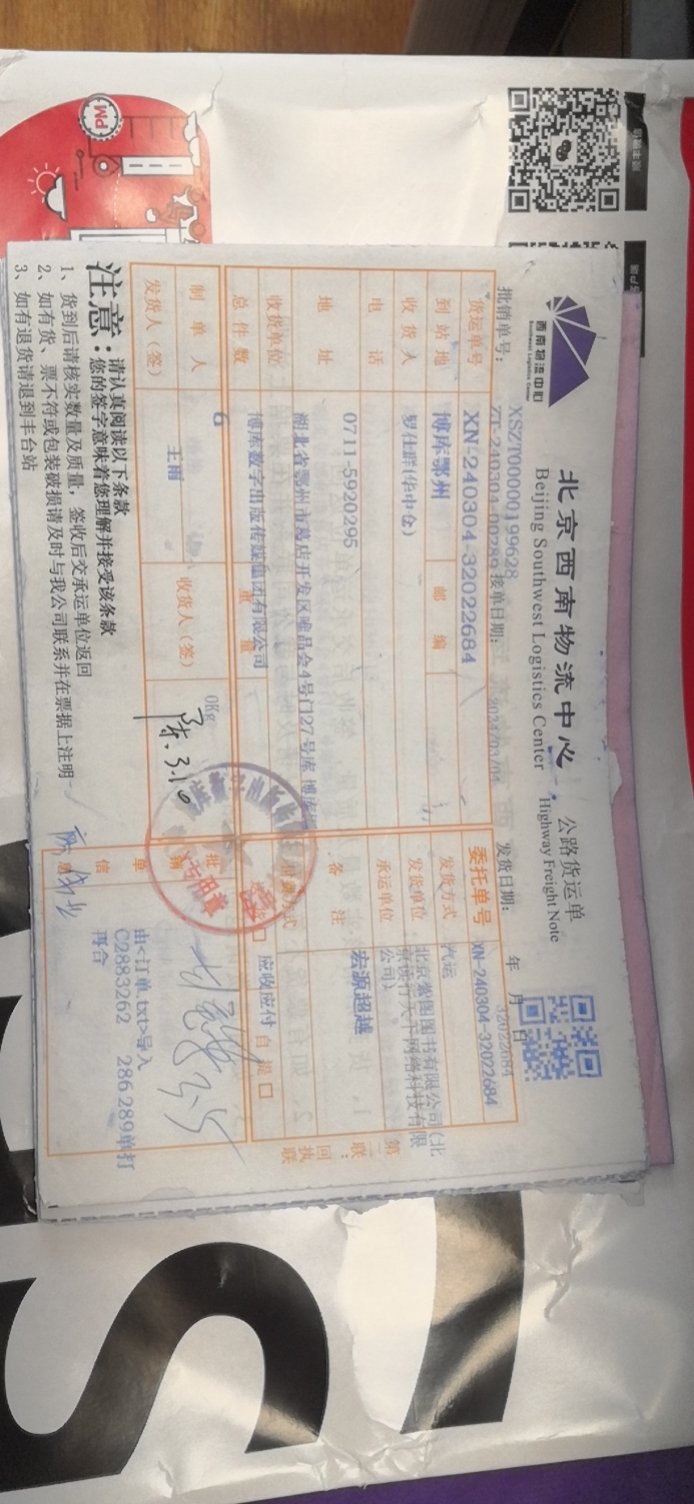 PM
西南物流中心
Southwest Logistics Center
北京西南物流中心
Beijing Southwest Logistics Center
公路货运单
Highway Freight Note
批销单号：
XSZT00000199628
ZT-240304-00289
接单日期：
2024/03/04
发货日期：
年 月 日
32022684
货运单号
XN-240304-32022684
委托单号
XN-240304-32022684
到站地
博库鄂州
邮编
发货方式
汽运
收货人
罗仕群(华中仓)
发货单位
北京紫图图书有限公司(北
天下网络科技有限
公司)
电话
0711-5920295
承运单位
宏源超越
地址
湖北省鄂州市葛店开发区唯品会4号门27号库
备注
收货单位
博库数字出版传媒集团有限公司
应收应付
自提
总件数
6
重量
0Kg
制单人
王雨
收货人（签）
3.16
发货人（签）
专用章
由<订单.txt>导入
C2883262 286 289单打
再合
第二联：回执联
注意：
请认真阅读以下条款
您的签字意味着您理解并接受该条款
1、货到后请核实数量及质量，签收后交承运单位返回
2、如有货、票不符或包装破损请及时与我公司联系并在票据上注明
3、如有退货请退到丰台站